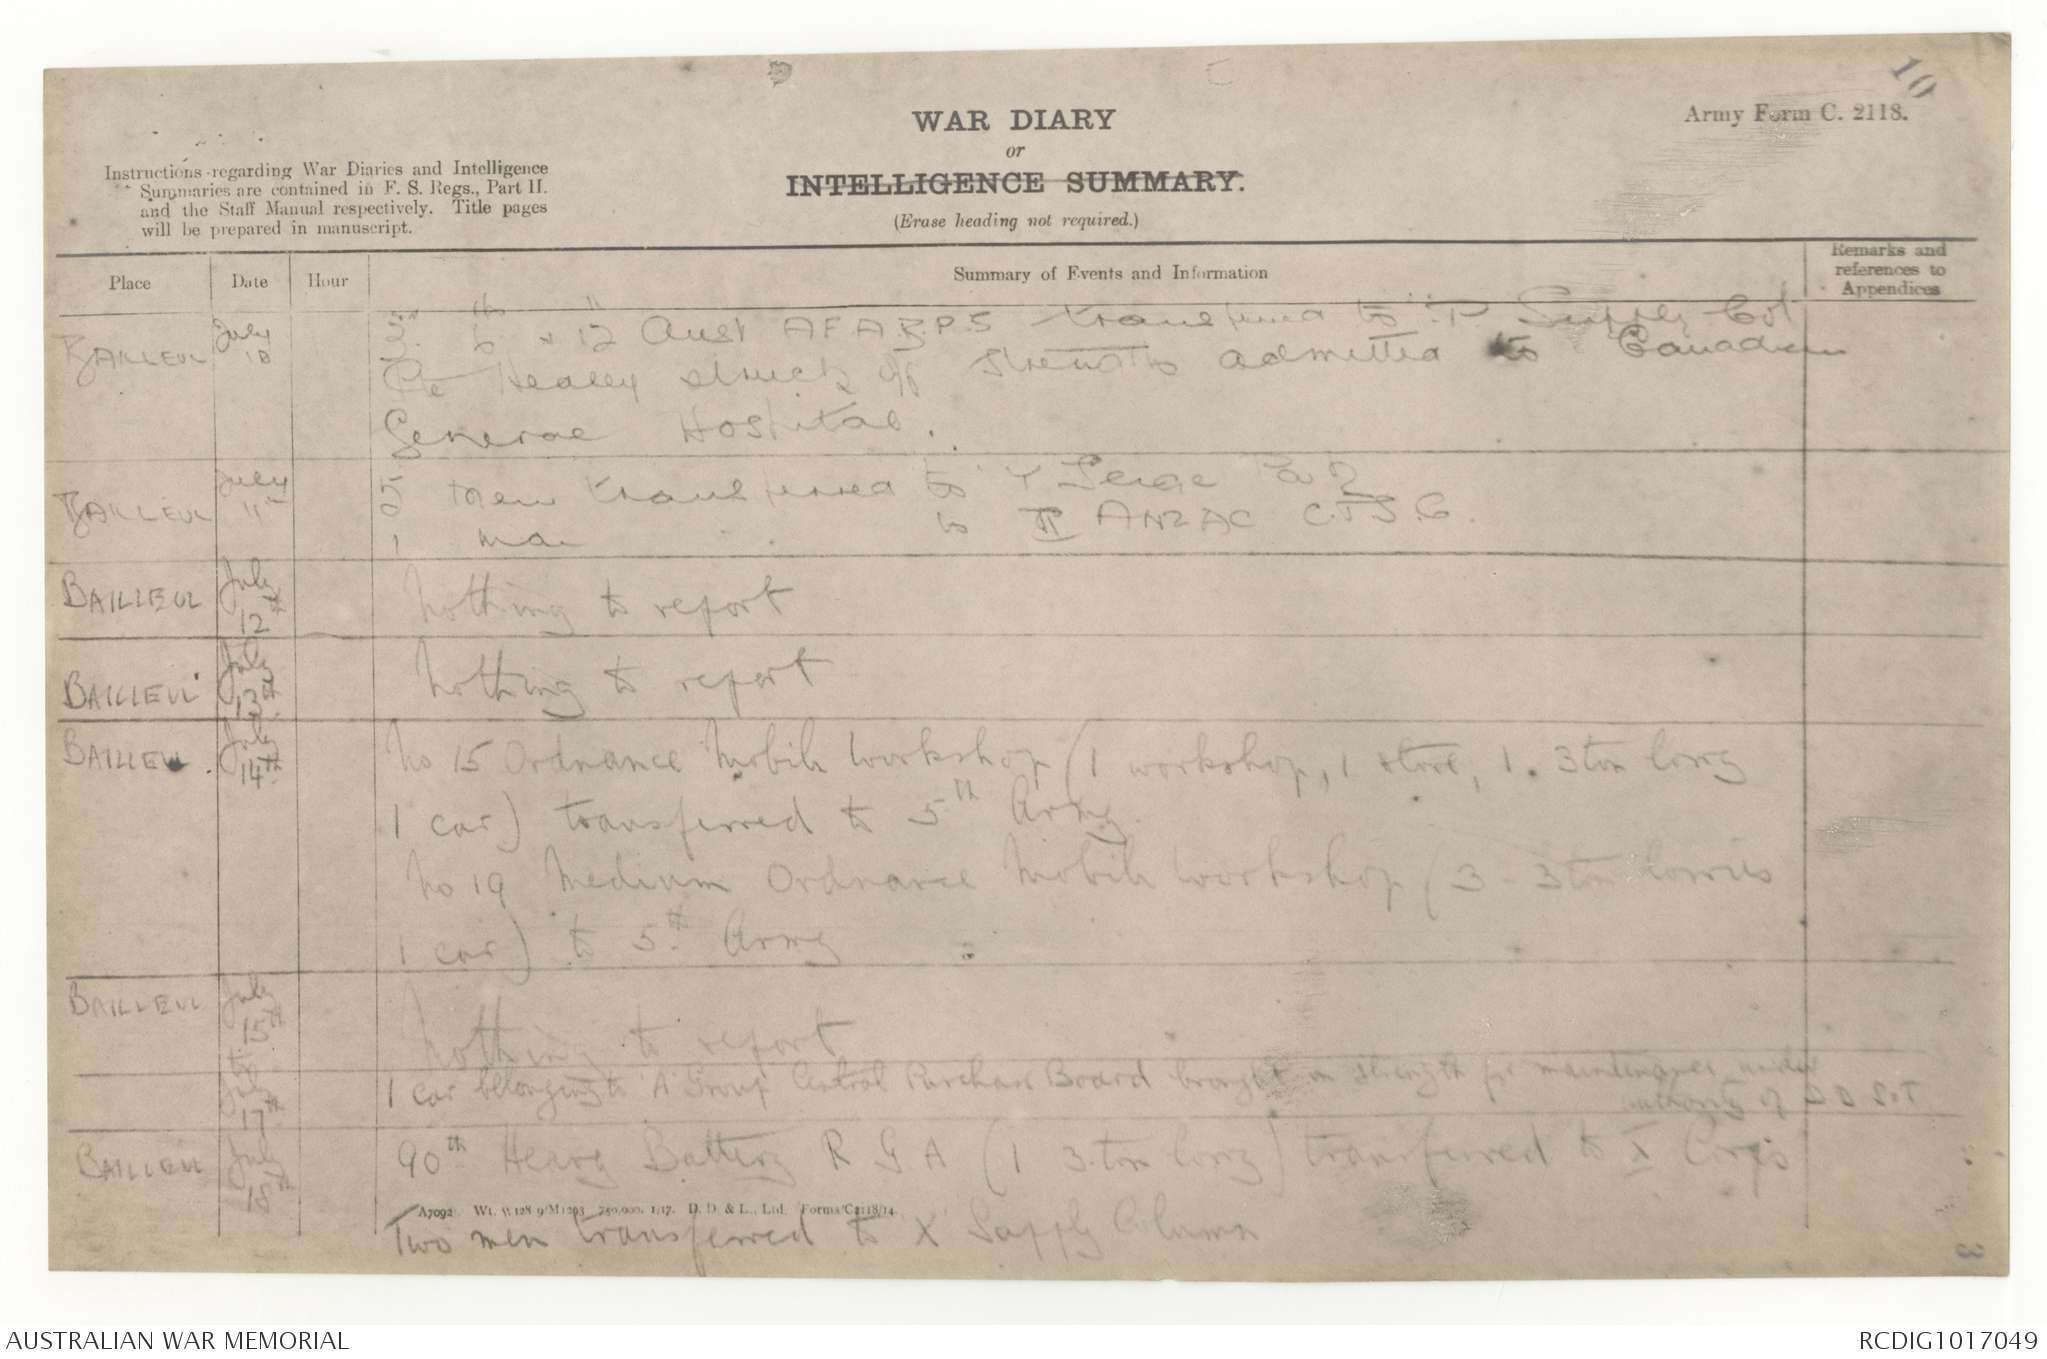 10
Army Form C. 2118.
WAR DIARY
or
INTELLIGENCE SUMMARY.
(Erase heading not required.)
Instructions regarding War Diaries and Intelligence
Summaries are contained in F. S. Regs., Part II.
and the Staff Manual respectively. Title pages
will be prepared in manuscript.
Place
Date
Hour
Summary of Events and Information
Remarks and
references to
Appendices
BAILLEUL
July
10
6 th 12 " Aust transferred to P Supply Col
Pte Healey struck off strength admitted to Canadian
General Hospital.
BAILLEUL
July
11th
25 men transferred to
1 man " to II ANZAC
BAILLEUL
July
12th
Nothing to report
BAILLEUL
July
13th
Nothing to report
BAILLEUL
July
14th
No 15 Ordnance Mobile Workshop (1 workshop, 1 store, 1. 3 ton lorry
1 car) transferred to 5th Army.
No 19 Medium Ordnance Mobile Workshop (3 - 3 ton lorries
1 car) to 5th Army
BAILLEUL
July
15th
to
July
17th
Nothing to report
1 car belonging to 'A' Group Central Purchase Board brought on strength for maintenance under
authority of D D S & T
BAILLEUL
July
18th
90th Heavy Battery R G A (1 3 ton lorry) transferred to X Corps
A7092. Wt. 750,000. 1/17. D. D. & L., Ltd. Forms/C2118/14.
Two men transferred to 'X' Supply Column
3
AUSTRALIAN WAR MEMORIAL
RCDIG1017049